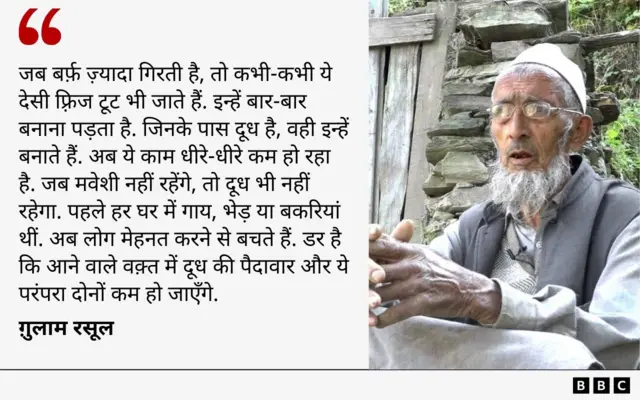 जब बर्फ़ ज़्यादा गिरती है, तो कभी-कभी ये
देसी फ़्रिज टूट भी जाते हैं. इन्हें बार-बार
बनाना पड़ता है. जिनके पास दूध है, वही इन्हें
बनाते हैं. अब ये काम धीरे-धीरे कम हो रहा
है. जब मवेशी नहीं रहेंगे, तो दूध भी नहीं
रहेगा. पहले हर घर में गाय, भेड़ या बकरियां
थीं. अब लोग मेहनत करने से बचते हैं. डर है
कि आने वाले वक़्त में दूध की पैदावार और ये
परंपरा दोनों कम हो जाएँगे.
ग़ुलाम रसूल
BBC